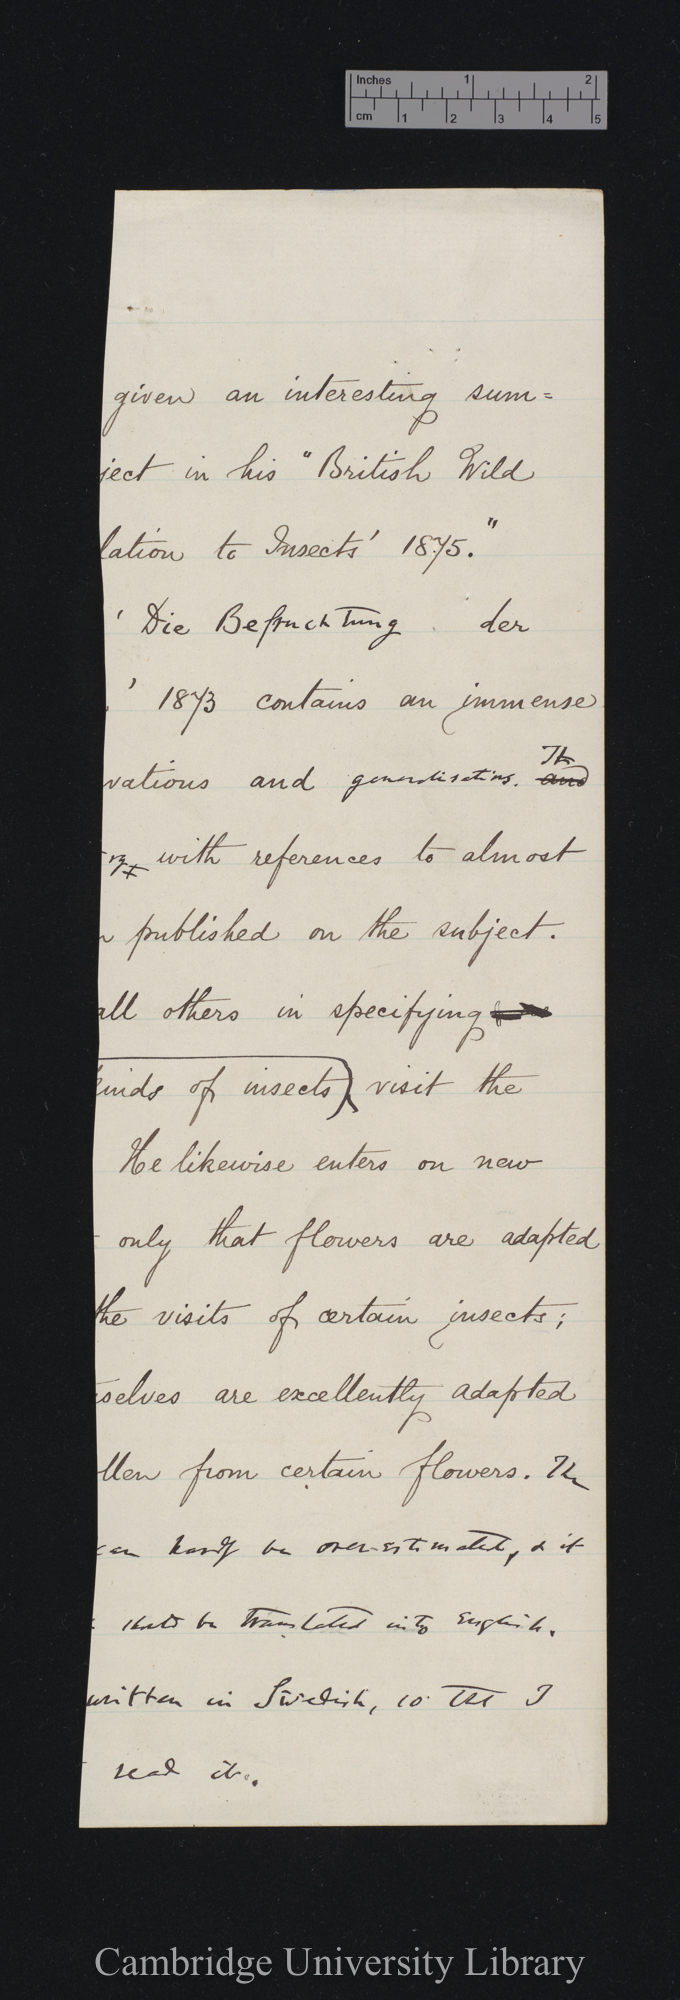 Inches 1 2
cm 1 2 3 4 5
given an interesting sum=
ject in his "British Wild
lation to Insects' 1875."
' Die Befruchtung der
.' 1873 contains an immense
vations and generalisations. Th
and
with references to almost
published on the subject.
all others in specifying
kinds of insects) visit the
He likewise enters on new
only that flowers are adapted
the visits of certain insects;
selves are excellently adapted
llen from certain flowers. The
can hardly be over-estimated, & it
should be translated into English.
written in Swedish, so that I
read it.
Cambridge University Library